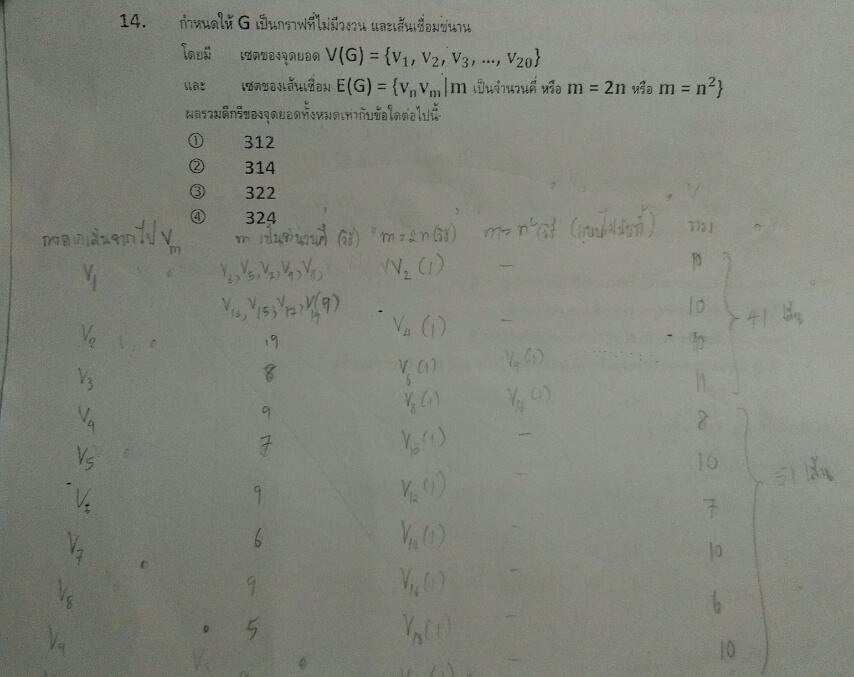 14. กำหนดให้ G เป็นกราฟที่ไม่มีวงวน และเส้นเชื่อมขนาน
โดยมี เซตของจุดยอด V(G) = {v₁, v₂, v₃, ..., v₂₀}
และ เซตของเส้นเชื่อม E(G) = {vₙvₘ|m เป็นจำนวนคี่ หรือ m = 2n หรือ m = n²}
ผลรวมดีกรีของจุดยอดทั้งหมดเท่ากับข้อใดต่อไปนี้
① 312
② 314
③ 322
④ 324
Vₘ m เป็นจำนวนคี่ (วิธี) m=2n (วิธี) รวม
V₁ V₂ (1) – 10
V₂ 9 V₄ (1) – 10
V₃ 8 V₆ (1) V₉ (1) 10
V₄ 9 V₈ (1) V₁₆ (1) 11
41 เส้น
V₅ 7 V₁₀ (1) – 8
9 V₁₂ (1) – 10
V₇ 6 V₁₄ (1) – 7
V₈ 9 V₁₆ (1) – 10
V₉ 5 V₁₈ (1) – 6
10
51 เส้น